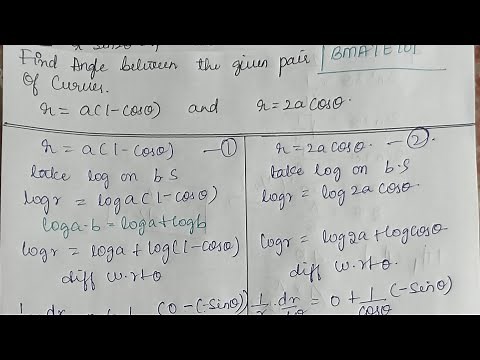 Find Angle between the given pair BMATE101
Of Curves.
r = a(1-cosθ) and r = 2a cosθ.
r = a(1-cosθ) —①
take log on b s
logr = loga(1-cosθ)
loga-b = loga+logb
logr = loga + log(1-cosθ)
diff w.r.t θ
(0-(-sinθ)
r = 2a cosθ. —②.
take log on b.s
logr = log2a cosθ.
logr = log2a + logcosθ.
diff w.r.t θ.
1/r . dr/dθ = 0 + 1/cosθ (-sinθ)